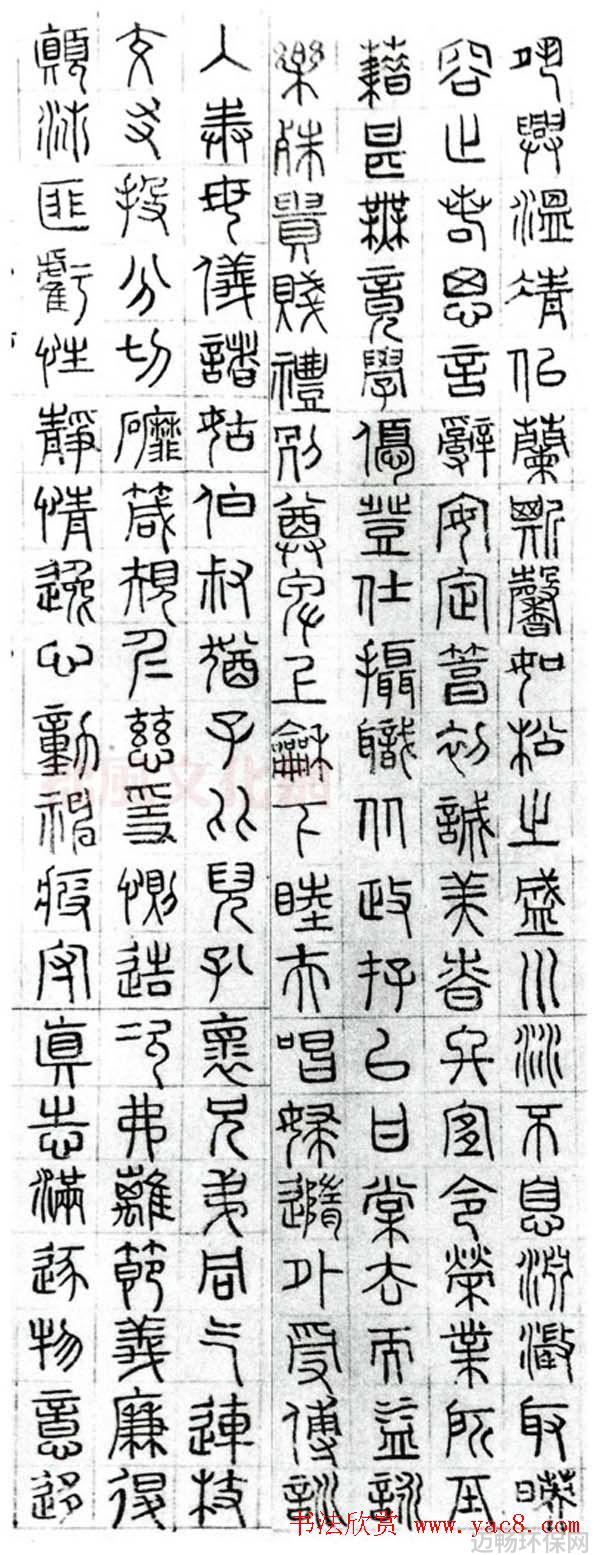 夙興溫凊似蘭斯馨如松之盛川流不息淵澂取暎
容止若思言辭安定篤初誠美慎終宜令榮業所基
籍甚無竟學優登仕攝職從政存以甘棠去而益詠
樂殊貴賤禮別尊卑上龢下睦夫唱婦隨外受傅訓
入奉母儀諸姑伯叔猶子比兒孔懷兄弟同气連枝
交友投分切磨箴規仁慈隱惻造次弗離節義廉退
顛沛匪虧性靜情逸心動神疲守真志滿逐物意移
书法欣赏 www.yac8.com
迈畅环保网